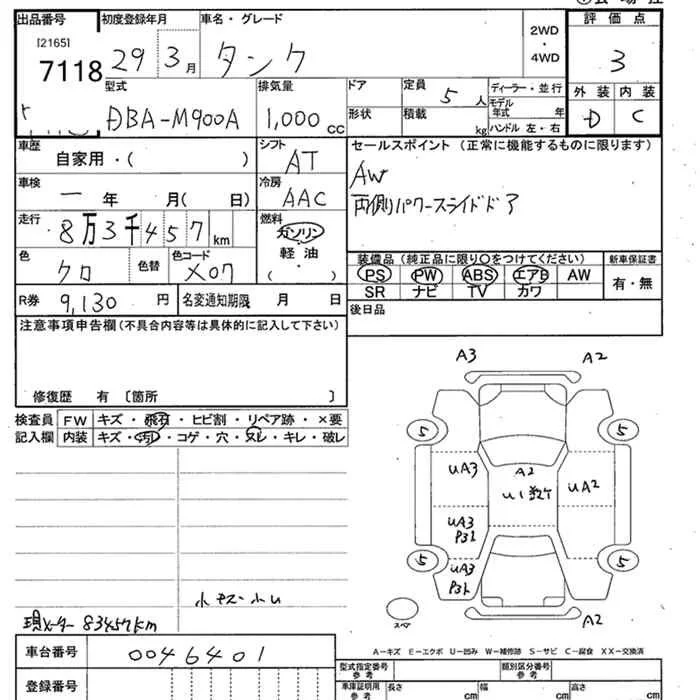 出品番号 初度登録年月 車名・グレード 評価点
[2165]
7118 29 3月 タンク 2WD・4WD 3
型式 排気量 ドア 定員 ディーラー・並行 外装 内装
DBA-M900A 1,000cc 5人 モデル年式 年 D C
形状 積載 kg ハンドル 左・右
車歴 自家用・( ) シフト AT セールスポイント (正常に機能するものに限ります)
車検 一 年 月( 日) 冷房 AAC AW
両側パワースライドドア
走行 8万3千457km 燃料 ガソリン・軽油・( )
装備品 (純正品に限り○をつけてください) 新車保証書
色 クロ 色替 色コード X07 PS PW ABS エアB AW 有・無
SR ナビ TV カワ
R券 9,130円 名変通知期限 月 日 後日品
注意事項申告欄(不具合内容等は具体的に記入して下さい)
修復歴 有 〔箇所 〕
検査員記入欄 FW キズ・飛石・ヒビ割・リペア跡・×要
内装 キズ・汚レ・コゲ・穴・スレ・キレ・破レ
A3 A2
5 5
UA3 A2 UA2
U1
UA3
5 UA3 5
A2
スペア
現メーター 83457km
A-キズ E-エクボ U-凹み W-補修跡 S-サビ C-腐食 XX-交換済
車台番号 0046401
型式指定番号 参考 類別区分番号 参考
登録番号 車庫証明用 参考 長さ cm 幅 cm 高さ cm